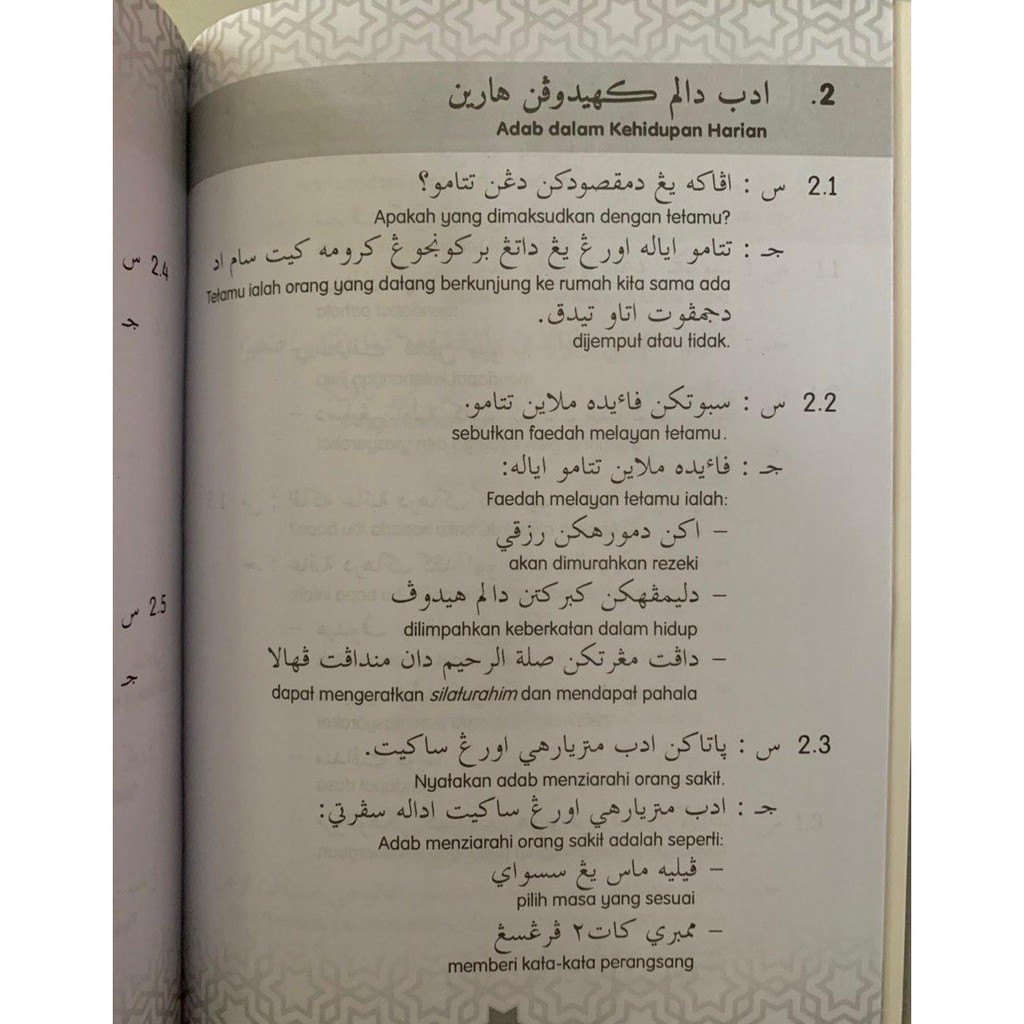 2. ادب دالم کهيدوڤن هارين
Adab dalam Kehidupan Harian
2.1 س : اڤاكه يڠ دمقصودكن دڠن تتامو؟
Apakah yang dimaksudkan dengan tetamu?
جـ : تتامو اياله اورڠ يڠ داتڠ بركونجوڠ كرومه كيت سام اد
Tetamu ialah orang yang datang berkunjung ke rumah kita sama ada
دجمڤوت اتاو تيدق.
dijemput atau tidak.
2.2 س : سبوتكن فاءيده ملاين تتامو.
sebutkan faedah melayan tetamu.
جـ : فاءيده ملاين تتامو اياله:
Faedah melayan tetamu ialah:
– اكن دمورهكن رزقي
akan dimurahkan rezeki
– دليمڤهكن كبركتن دالم هيدوڤ
dilimpahkan keberkatan dalam hidup
– داڤت مڠرتكن صلة الرحيم دان منداڤت ڤهالا
dapat mengeratkan silaturahim dan mendapat pahala
2.3 س : ڽاتاكن ادب منزيارهي اورڠ ساكيت.
Nyatakan adab menziarahi orang sakit.
جـ : ادب منزيارهي اورڠ ساكيت اداله سڤرتي:
Adab menziarahi orang sakit adalah seperti:
– ڤيليه ماس يڠ سسواي
pilih masa yang sesuai
– ممبري كات٢ ڤرڠسڠ
memberi kata-kata perangsang
2.4 س
جـ
2.5 س
جـ